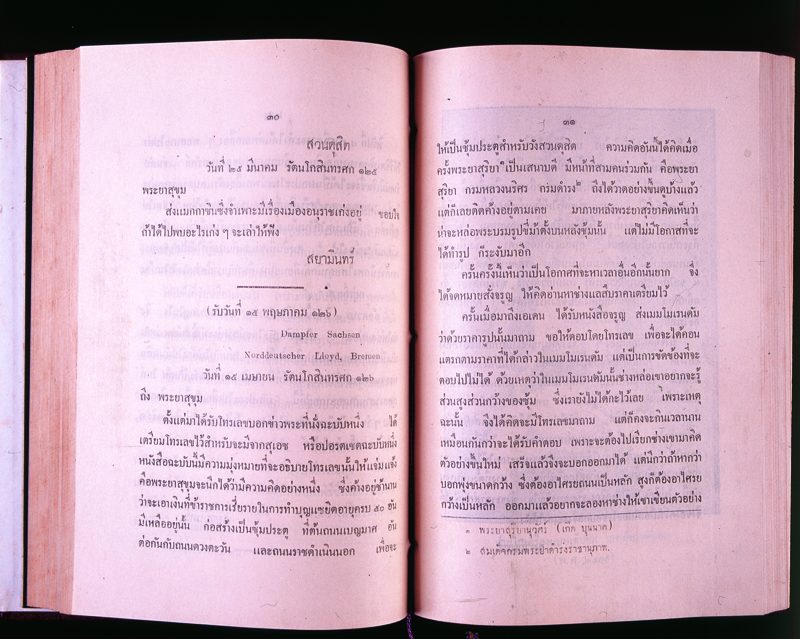 ๓๐
สวนดุสิต
วันที่ ๒๕ มีนาคม รัตนโกสินทรศก ๑๒๕
พระยาสุขุม
ส่งแมกกาซินซึ่งจำเพาะมีเรื่องเมืองอนุราชเก่งอยู่ ขอบใจ
ถ้าได้ไปพบอะไรเก่ง ๆ จะเล่าให้ฟัง
สยามินทร์
(รับวันที่ ๑๕ พฤษภาคม ๑๒๖)
Dampfer Sachsen
Norddeutscher Lloyd, Bremen
วันที่ ๑๕ เมษายน รัตนโกสินทรศก ๑๒๖
ถึง พระยาสุขุม
ตั้งแต่มาได้รับโทรเลขบอกข่าวพระที่นั่งฉะบับหนึ่ง ได้
เตรียมโทรเลขไว้สำหรับจะมีจากสุเอซ หรือปอรตเซดฉะบับหนึ่ง
หนังสือฉะบับนี้มีความมุ่งหมายที่จะอธิบายโทรเลขนั้นให้แจ่มแจ้ง
คือพระยาสุขุมจะนึกได้ว่ามีความคิดอย่างหนึ่ง ซึ่งค้างอยู่ช้านาน
ว่าจะเอาเงินที่ข้าราชการเรี่ยรายในการทำบุญแซยิดอายุครบ ๕๐ อัน
มีเหลืออยู่นั้น ก่อสร้างเป็นซุ้มประตู ที่ต้นถนนเบญมาศ อัน
ต่อกันกับถนนดวงตะวัน และถนนราชดำเนินนอก เพื่อจะ
๓๑
ให้เป็นซุ้มประตูสำหรับวังสวนดุสิต ความคิดอันนี้ได้คิดเมื่อ
ครั้งพระยาสุริยา๑ เป็นเสนาบดี มีหน้าที่สามคนร่วมกัน คือพระยา
สุริยา กรมหลวงนริศร กรมดำรง๒ ถึงได้วาดอย่างขึ้นดูบ้างแล้ว
แต่ก็เลยติดค้างอยู่ตามเคย มาภายหลังพระยาสุริยาคิดเห็นว่า
น่าจะหล่อพระบรมรูปขี่ม้าตั้งบนหลังซุ้มนั้น แต่ไม่มีโอกาสที่จะ
ได้ทำรูป ก็ระงับมาอีก
ครั้นครั้งนี้เห็นว่าเป็นโอกาศที่จะหาเวลาอื่นอีกนั้นยาก จึง
ได้จดหมายสั่งจรูญ ให้คิดอ่านหาช่างแลสืบราคาเตรียมไว้
ครั้นเมื่อมาถึงเอเดน ได้รับหนังสือจรูญ ส่งเมมโมเรนดัม
ว่าด้วยราคารูปนั้นมาถาม ขอให้ตอบโดยโทรเลข เพื่อจะได้คอน
แตรกตามราคาที่ได้กล่าวในเมมโมเรนดัม แต่เป็นการขัดข้องที่จะ
ตอบไปไม่ได้ ด้วยเหตุว่าในเมมโมเรนดัมนั้นช่างหล่อเขาอยากจะรู้
ส่วนสูงส่วนกว้างของซุ้ม ซึ่งเรายังไม่ได้กะไว้เลย เพราะเหตุ
ฉะนั้น จึงได้คิดจะมีโทรเลขมาถาม แต่ก็คงจะกินเวลานาน
เหมือนกันกว่าจะได้รับคำตอบ เพราะจะต้องไปเรียกช่างเขามาคิด
ตัวอย่างขึ้นใหม่ เสร็จแล้วจึงจะบอกออกมาได้ แต่นึกว่าถ้าหากว่า
บอกพุ่งขนาดกว้าง ซึ่งต้องอาไศรยถนนเป็นหลัก สูงก็ต้องอาไศรย
กว้างเป็นหลัก ออกมาแล้วอยากจะลองหาช่างให้เขาเขียนตัวอย่าง
๑ พระยาสุริยานุวัตร์ (เกิด บุนนาค)
๒ สมเด็จกรมพระยาดำรงราชานุภาพ.